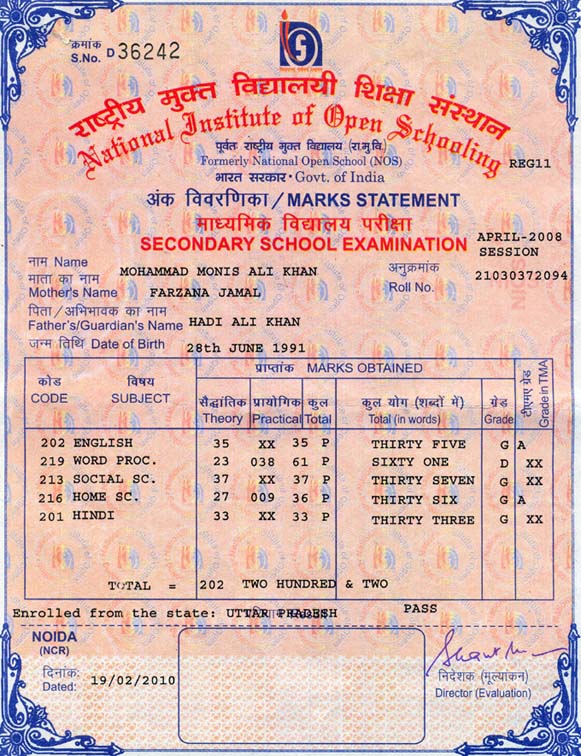 क्रमांक
S.No. D 36242
राष्ट्रीय मुक्त विद्यालयी शिक्षा संस्थान
National Institute of Open Schooling
पूर्वतः राष्ट्रीय मुक्त विद्यालय (रा.मु.वि.)
Formerly National Open School (NOS)
REG11
भारत सरकार · Govt. of India
अंक विवरणिका / MARKS STATEMENT
माध्यमिक विद्यालय परीक्षा
SECONDARY SCHOOL EXAMINATION
APRIL-2008
SESSION
नाम Name MOHAMMAD MONIS ALI KHAN
अनुक्रमांक
Roll No. 21030372094
माता का नाम
Mother's Name FARZANA JAMAL
पिता/अभिभावक का नाम
Father's/Guardian's Name HADI ALI KHAN
जन्म तिथि Date of Birth 28th JUNE 1991
प्राप्तांक MARKS OBTAINED
कोड विषय सैद्धांतिक प्रायोगिक कुल कुल योग (शब्दों में) ग्रेड टीएमए ग्रेड
CODE SUBJECT Theory Practical Total Total (in words) Grade Grade in TMA
202 ENGLISH 35 XX 35 P THIRTY FIVE G A
219 WORD PROC. 23 038 61 P SIXTY ONE D XX
213 SOCIAL SC. 37 XX 37 P THIRTY SEVEN G XX
216 HOME SC. 27 009 36 P THIRTY SIX G A
201 HINDI 33 XX 33 P THIRTY THREE G XX
TOTAL = 202 TWO HUNDRED & TWO
Enrolled from the state: UTTAR PRADESH PASS
NOIDA
(NCR)
दिनांक:
Dated: 19/02/2010
निदेशक (मूल्यांकन)
Director (Evaluation)